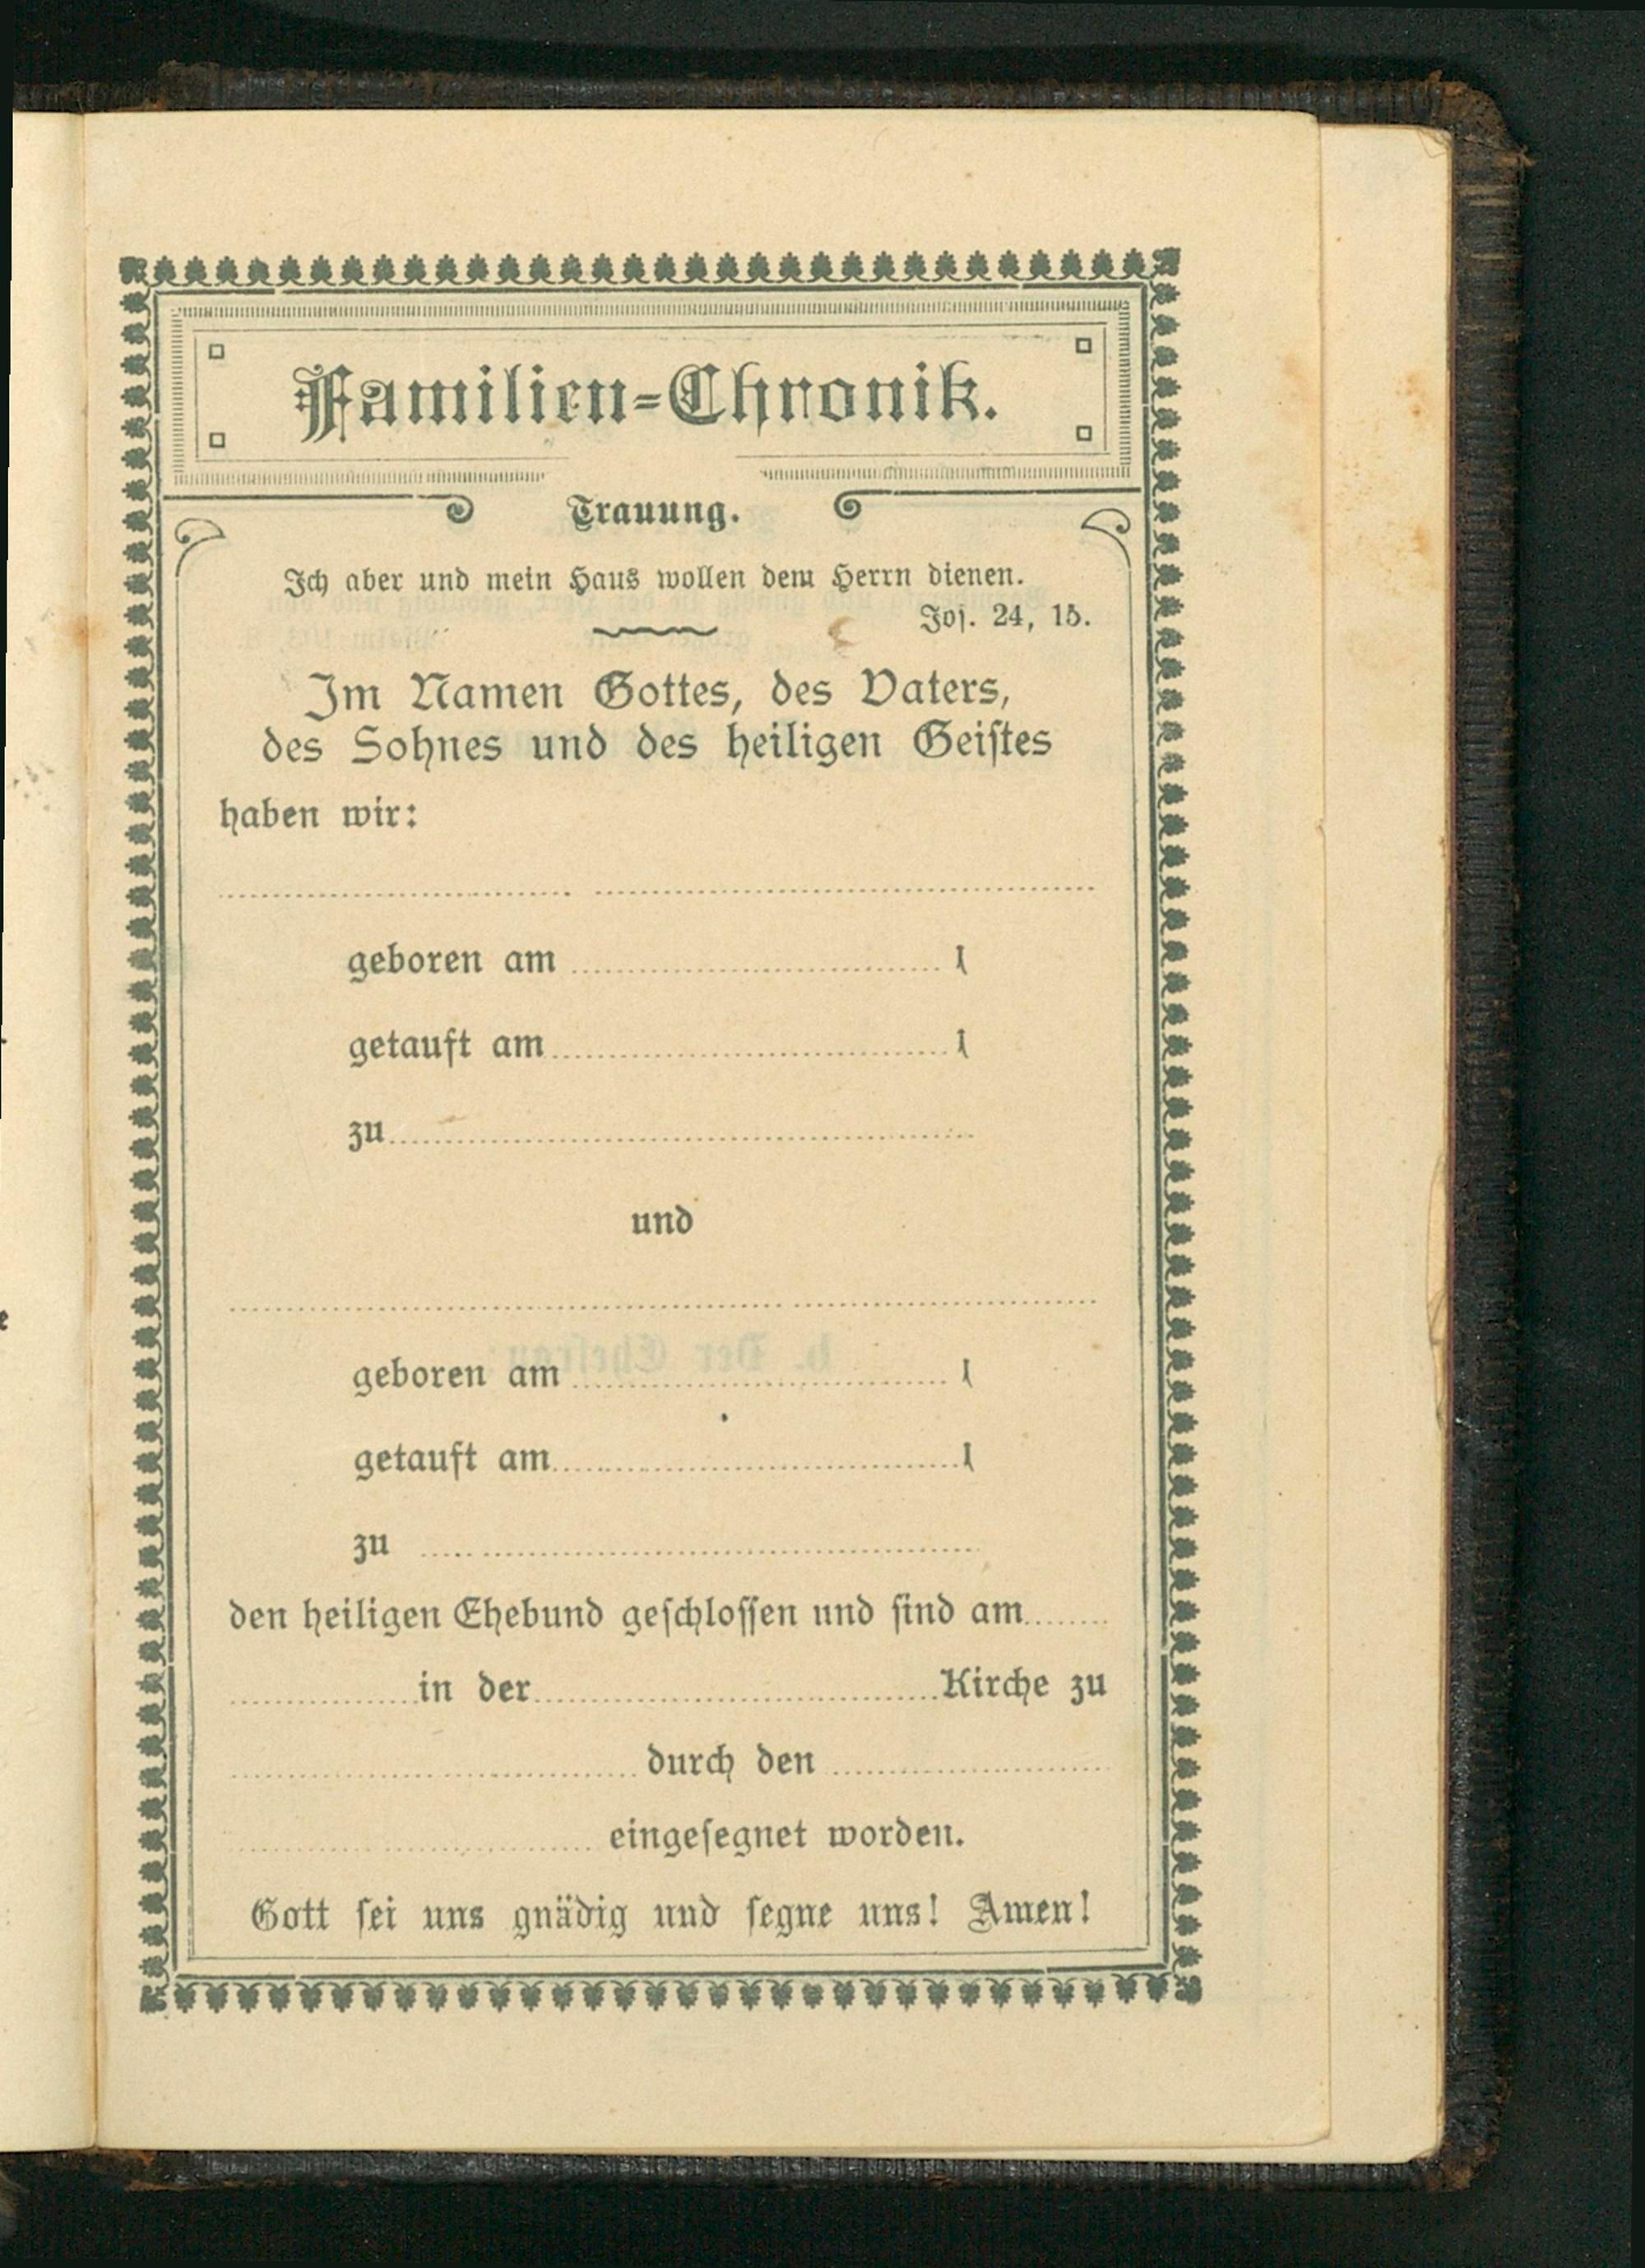 Familien-Chronik.
Trauung.
Ich aber und mein Haus wollen dem Herrn dienen.
Joſ. 24, 15.
Im Namen Gottes, des Vaters,
des Sohnes und des heiligen Geiſtes
haben wir:
geboren am 1
getauft am 1
zu
und
geboren am 1
getauft am 1
zu
den heiligen Ehebund geſchloſſen und ſind am
in der Kirche zu
durch den
eingeſegnet worden.
Gott ſei uns gnädig und ſegne uns! Amen!